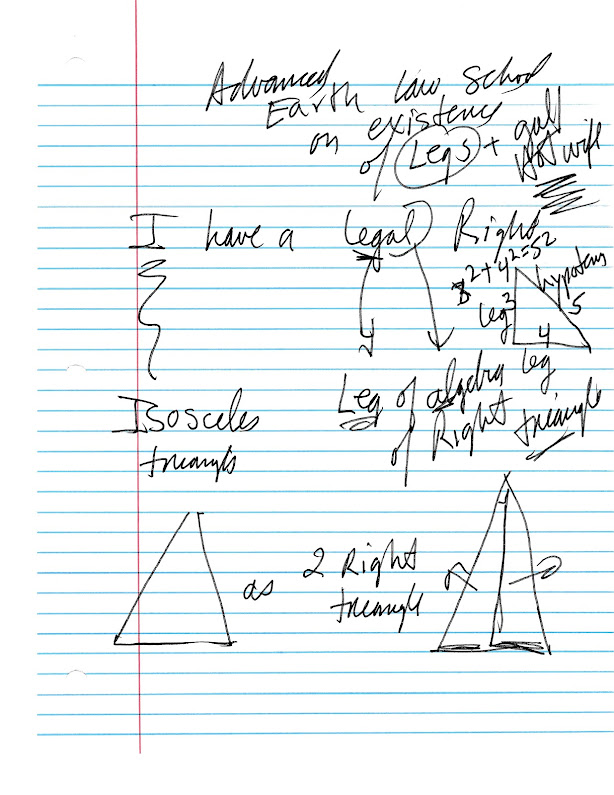 Advanced
Earth Law School
on existence
of Legs + 
Hot wife
I have a legal Right
3²+4²=5²
leg 3
5
4
Leg of algebra leg
of Right triangle
Isosceles
triangle
as 2 Right
triangle